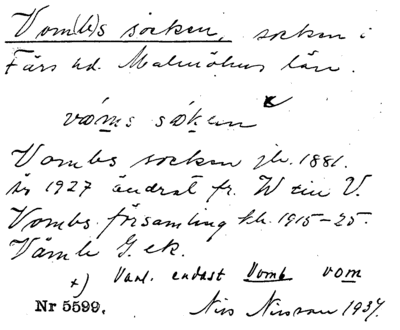 Vom(b)s socken, socken i
Färs hd. Malmöhus län.
våms såken x
Vombs socken jb. 1881.
år 1927 ändrat fr. W till V.
Vombs församling kb. 1915–25.
Vämb G. ek.
x) Vanl. endast Vomb vom
Nr 5599. Nils Nilsson 1937.